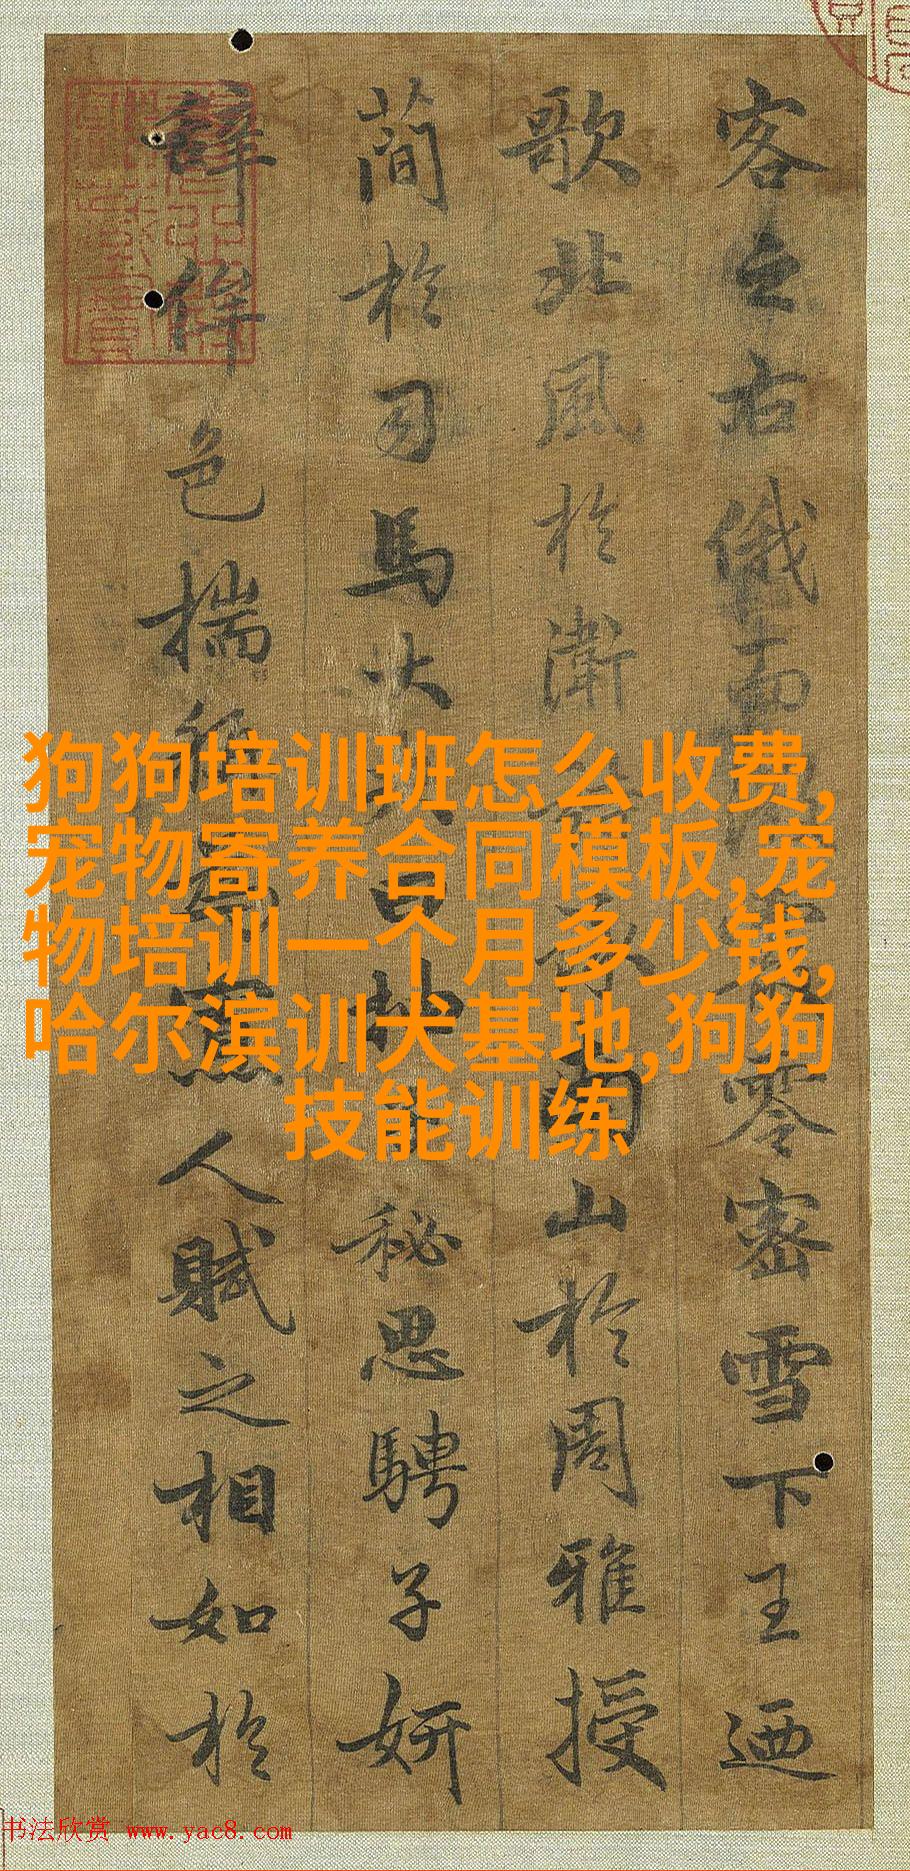 客之右俄而零密雪下王迺
歌北風於衛南山於周雅授
簡於司馬大夫曰抽秘思騁子妍
辭侔色揣稱爲寡人賦之相如於
狗狗培训班怎么收费,
宠物寄养合同模板,宠
物培训一个月多少钱,
哈尔滨训犬基地,狗狗
技能训练
书法欣赏 www.yac8.com